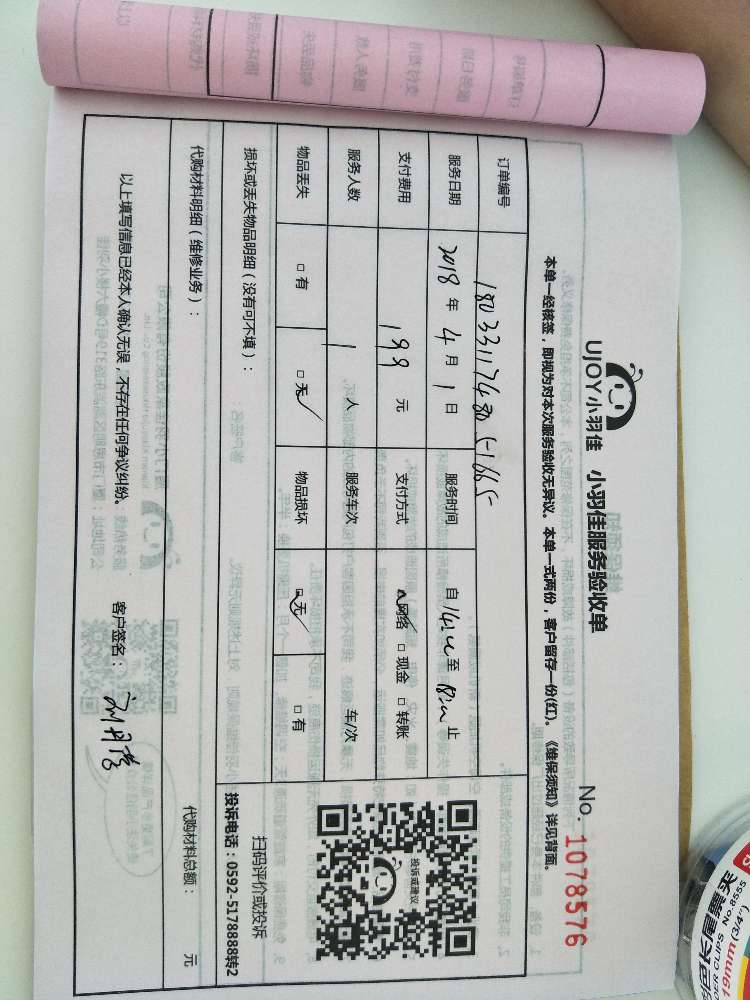 UJOY小羽佳 小羽佳服务验收单
No. 1078576
本单一经核签，即视为对本次服务验收无异议。本单一式两份，客户留存一份(红)。《维保须知》详见背面。
订单编号
服务日期 2018 年 4 月 1 日 服务时间 自 至 止
支付费用 199 元 支付方式 网络 □ 现金 □ 转账
服务人数 1 人 服务车次 车/次
物品丢失 □ 有 □ 无 物品损坏 □ 无 □ 有
投诉或建议
扫码评价或投诉
投诉电话：0592-5178888转2
损坏或丢失物品明细（没有可不填）：
代购材料明细（维修业务）： 代购材料总额： 元
以上填写信息已经本人确认无误，不存在任何争议纠纷。 客户签名：
色长尾票夹
DER CLIPS No.8555
19mm(3/4")